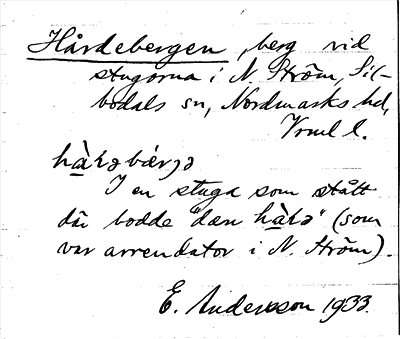 Hårdebergen, berg vid
stugorna i N. Ström, Sil-
bodals sn, Nordmarks hd,
Vrml l.
I en stuga som stått
där bodde "dæn hà̱ʈə" (som
var arrendator i N. Ström).
E. Andersson 1933.